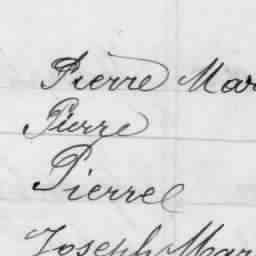 Pierre Mar
Pierre
Pierre
Joseph Mar